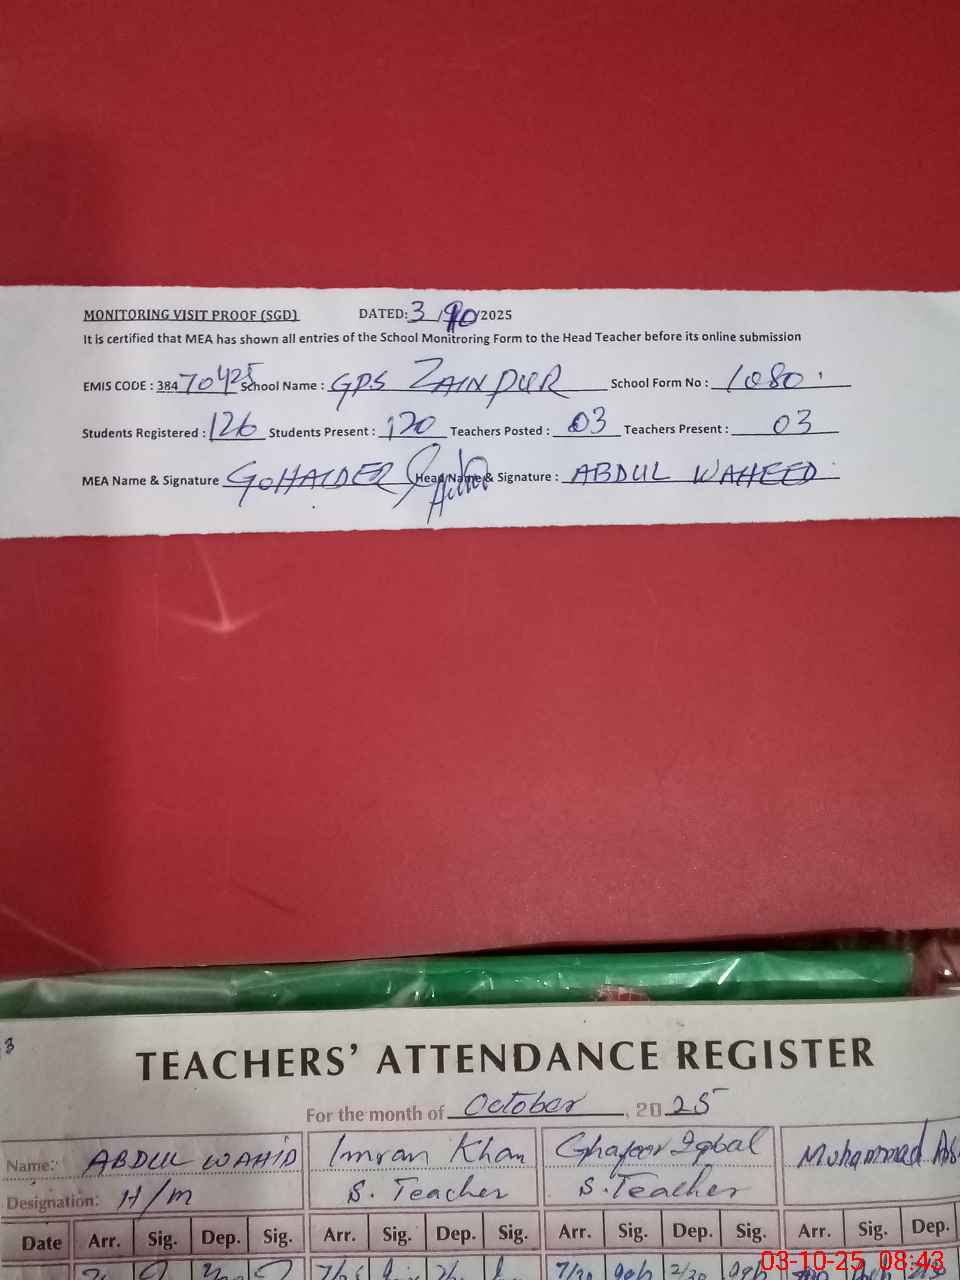 MONITORING VISIT PROOF (SGD) DATED: 3/10/2025
It is certified that MEA has shown all entries of the School Monitroring Form to the Head Teacher before its online submission
EMIS CODE : 38470425 School Name : GPS ZAINPUR School Form No : 1080
Students Registered : 126 Students Present : 120 Teachers Posted : 03 Teachers Present : 03
MEA Name & Signature GOHAIDER Head Name & Signature : ABDUL WAHEED
3
TEACHERS' ATTENDANCE REGISTER
For the month of October, 2025
Name: ABDUL WAHID Imran Khan Ghafoor Iqbal Muhammad
Designation: H/M S. Teacher S. Teacher
Date Arr. Sig. Dep. Sig. Arr. Sig. Dep. Sig. Arr. Sig. Dep. Sig. Arr. Sig. Dep.
03-10-25 08:43